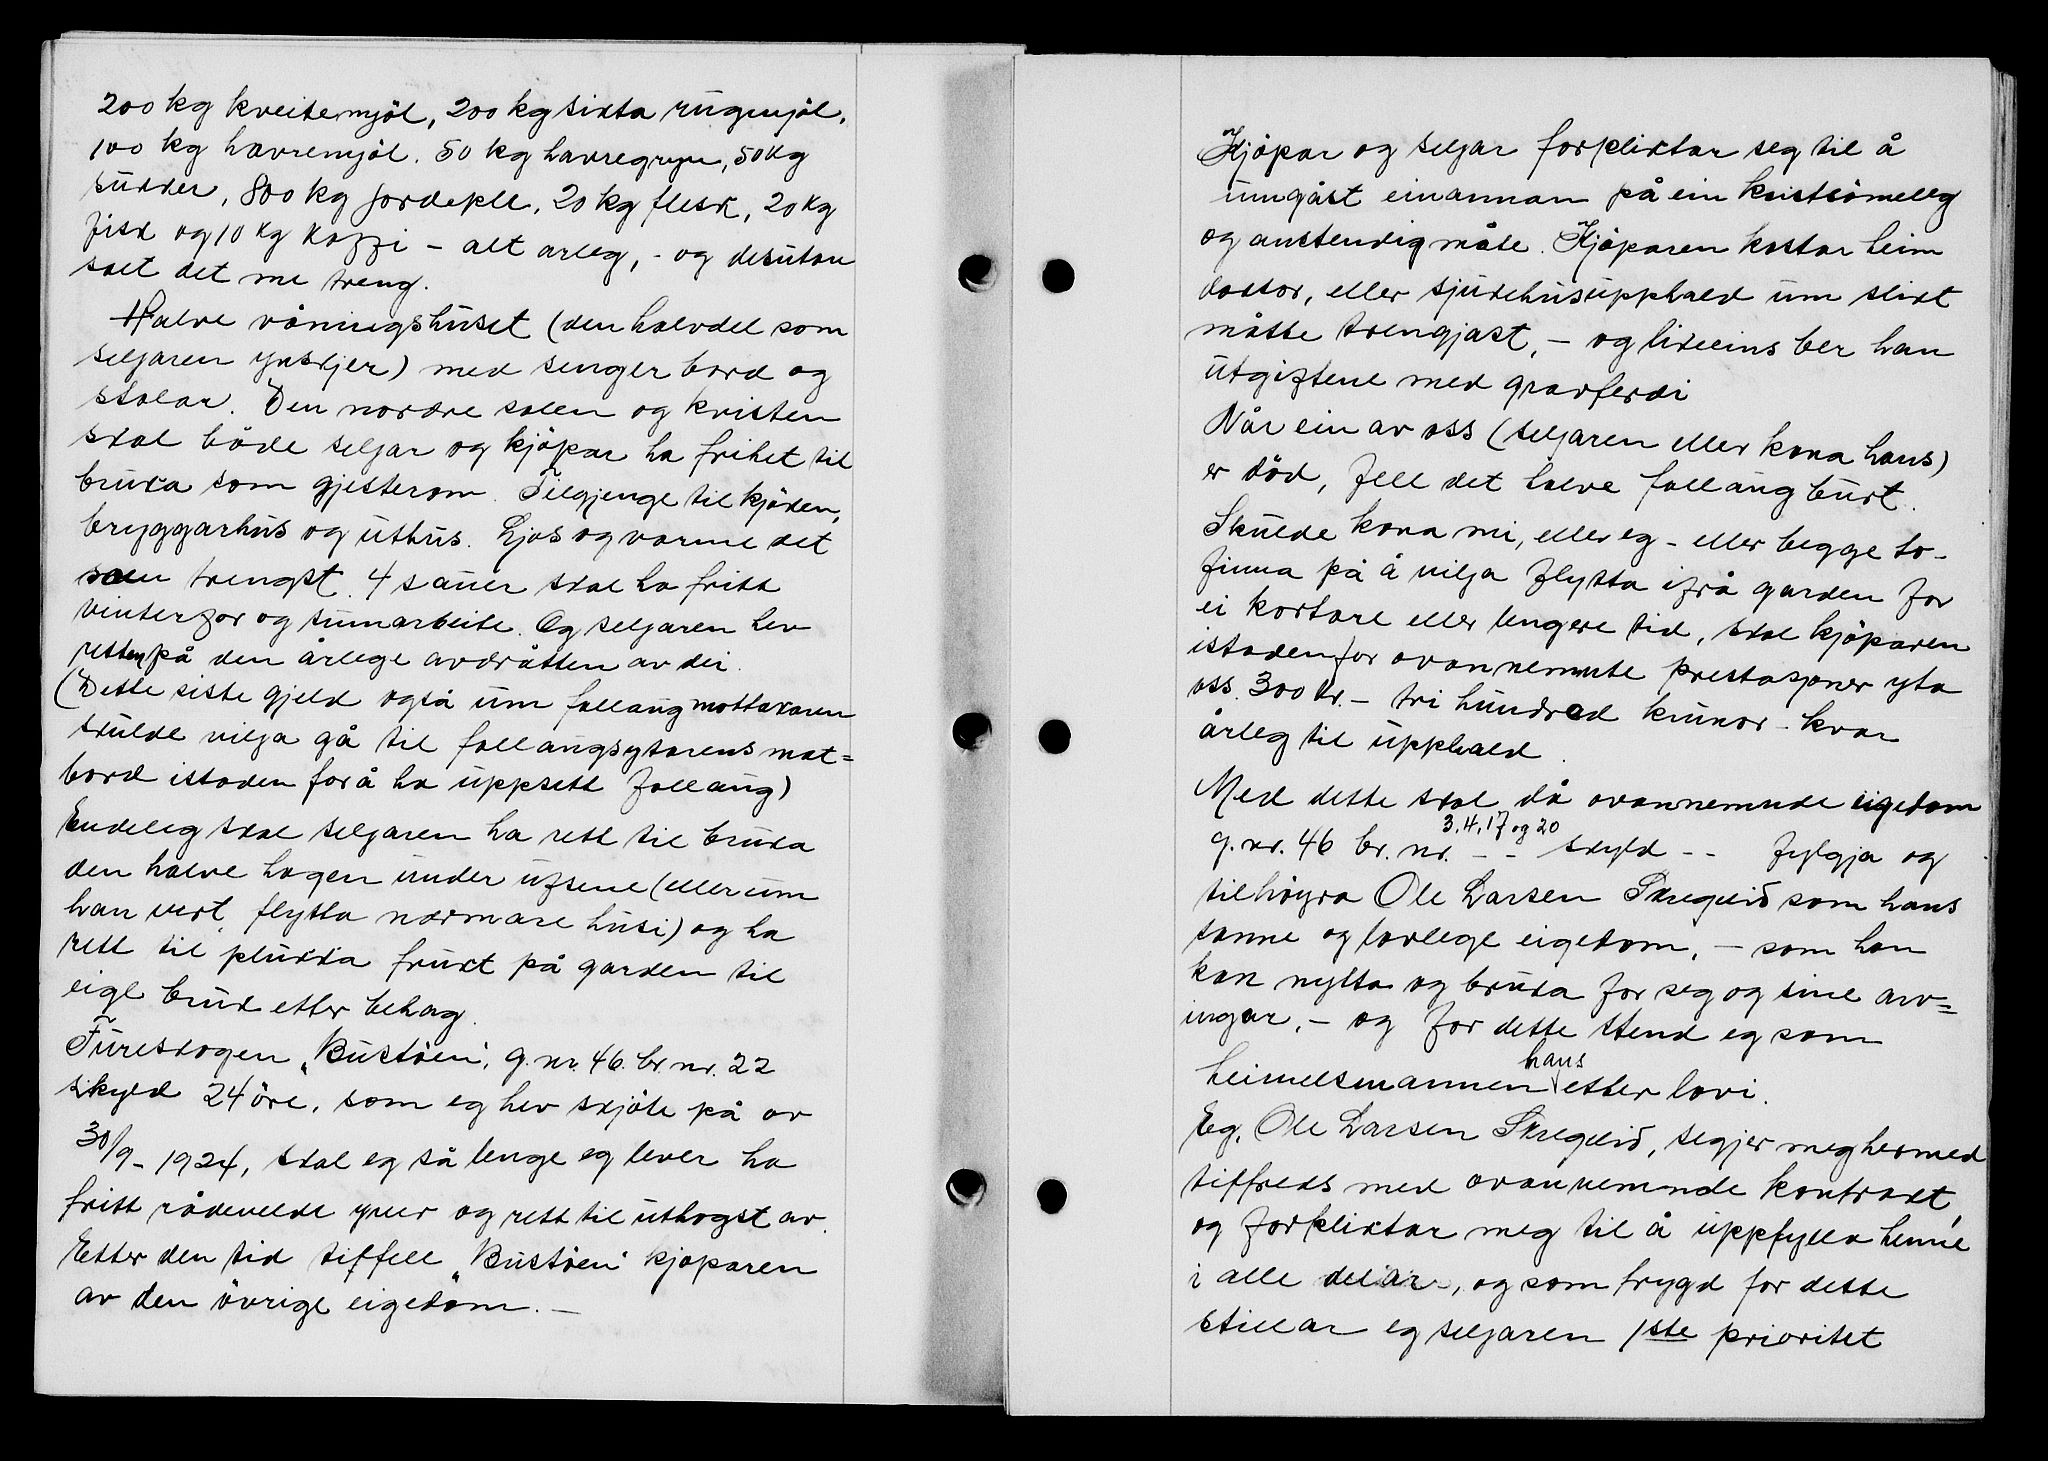 200 kg kveitemjöl, 200 kg sikta rugmjöl,
100 kg havremjöl. 50 kg havregryn, 50 kg
sukker, 800 kg jordeple, 20 kg flesk, 20 kg
fisk og 10 kg kaffi – alt årleg, - og desutan
salt det me treng.
Halve våningshuset (den halvdel som
seljaren ynskjer) med senger bord og
stolar. Den nordre salen og kvisten
skal både seljar og kjöpar ha frihet til
bruka som gjesterom. Tilgjenge til kjöken,
bryggarhus og uthus. Ljos og varme det
som trengst. 4 sauer skal ha fritt
vinterfor og sumarbeite. Og seljaren hev
retten på den årlege avdråtten av dei.
(Dette siste gjeld også um follaugmottakaren
skulde vilja gå til follaugsytarens mat=
bord istaden for å ha uppsett follaug)
Endeleg skal seljaren ha rett til bruka
den halve hagen under ufsene (eller um
han vert flytta nærmare husi) og ha
rett til plukka frukt på garden til
eige bruk etter behag.
Fureskogen „Bustöen", g. nr. 46. br. nr. 22
skyld 24 öre, som eg hev skjöte på av
30/9 - 1924, skal eg så lenge eg lever ha
fritt rådevelde yver og rett til uthogst av.
Etter den tid tilfell „Bustöen" kjöparen
av den övrige eigedom. –
Kjöpar og seljar forpliktar seg til å
umgåst einannan på ein kristsömeleg
og anstendig måte. Kjöparen kostar heim
doktor, eller sjukehusupphald um slikt
måtte trengjast, – og likeeins ber han
utgiftene med gravferdi
Når ein av oss (seljaren eller kona hans)
er död, fell det halve follaug burt.
Skulde kona mi, eller eg - eller begge to -
finna på å vilja flytta ifrå garden for
ei kortare eller lengere tid, skal kjöparen
istadenfor ovannemnte prestasjoner yta
oss 300 kr. – tri hundred krunor - kvar
årleg til upphald.
Med dette skal då ovannemnde eigedom
g. nr. 46 br. nr. 3, 4, 17 og 20 - - skyld - - fylgja og
tilhöyra Ole Larsen Skregelid som hans
sanne og lovlege eigedom, – som han
kan nytta og bruka for seg og sine arv=
ingar, – og for dette stend eg som
heimelsmannen hans etter lovi.
Eg, Ole Larsen Skregelid, segjer meg hermed
tilfreds med ovannemnde kontrakt,
og forpliktar meg til å uppfylla henne
i alle delar, og som trygd for dette
stillar eg seljaren 1ste prioritet